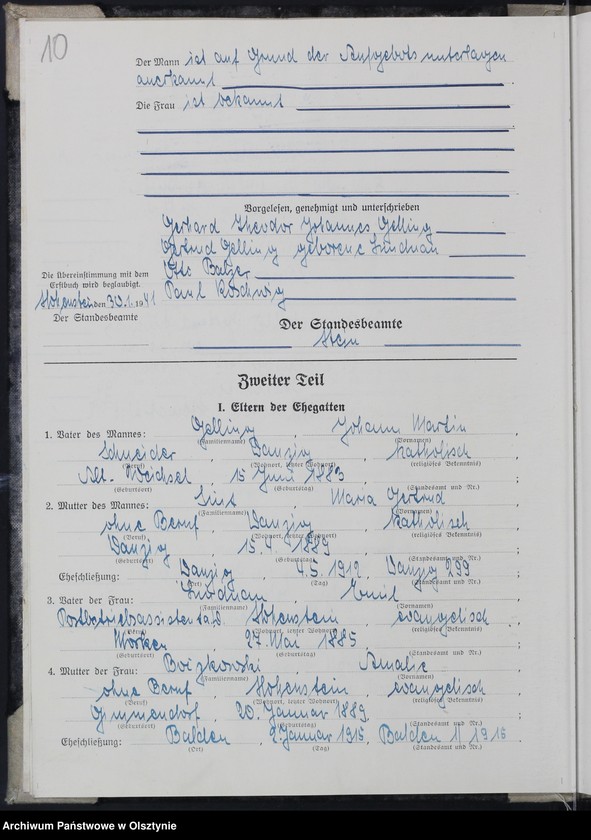 10
Der Mann ist auf Grund der Aufgebotsunterlagen
anerkannt
Die Frau ist bekannt
Vorgelesen, genehmigt und unterschrieben
Gerhard Theodor Johannes Gelling
Gertrud Gelling geborene Lindnau
Otto Balzer
Paul Koschwig
Die Übereinstimmung mit dem
Erstbuch wird beglaubigt.
Hohenstein den 30.1. 1941
Der Standesbeamte
Der Standesbeamte
Stein
Zweiter Teil
I. Eltern der Ehegatten
1. Vater des Mannes: Gelling , Johann Martin ,
(Familienname) (Vornamen)
Schneider , Danzig , katholisch
(Beruf) (Wohnort, letzter Wohnort) (religiöses Bekenntnis)
Alt-Weichsel , 15 Juni 1883 ;
(Geburtsort) (Geburtstag) (Standesamt und Nr.)
2. Mutter des Mannes: Maria Gertrud ,
(Familienname) (Vornamen)
ohne Beruf , Danzig , katholisch
(Beruf) (Wohnort, letzter Wohnort) (religiöses Bekenntnis)
Danzig , 15.4.1889 ;
(Geburtsort) (Geburtstag) (Standesamt und Nr.)
Eheschließung: Danzig , 4.5.1912 , Danzig 299 ;
(Ort) (Tag) (Standesamt und Nr.)
3. Vater der Frau: Lindnau , Emil ,
(Familienname) (Vornamen)
Postbetriebsassistent a.D. Hohenstein , evangelisch
(Beruf) (Wohnort, letzter Wohnort) (religiöses Bekenntnis)
Worken , 27. Mai 1885 ;
(Geburtsort) (Geburtstag) (Standesamt und Nr.)
4. Mutter der Frau: Boizkowski , Amalie ,
(Familienname) (Vornamen)
ohne Beruf , Hohenstein , evangelisch
(Beruf) (Wohnort, letzter Wohnort) (religiöses Bekenntnis)
Gimmendorf , 20. Januar 1889 ;
(Geburtsort) (Geburtstag) (Standesamt und Nr.)
Eheschließung: Balden , 2. Januar 1916 , Balden 1/1916 .
(Ort) (Tag) (Standesamt und Nr.)
Archiwum Państwowe w Olsztynie